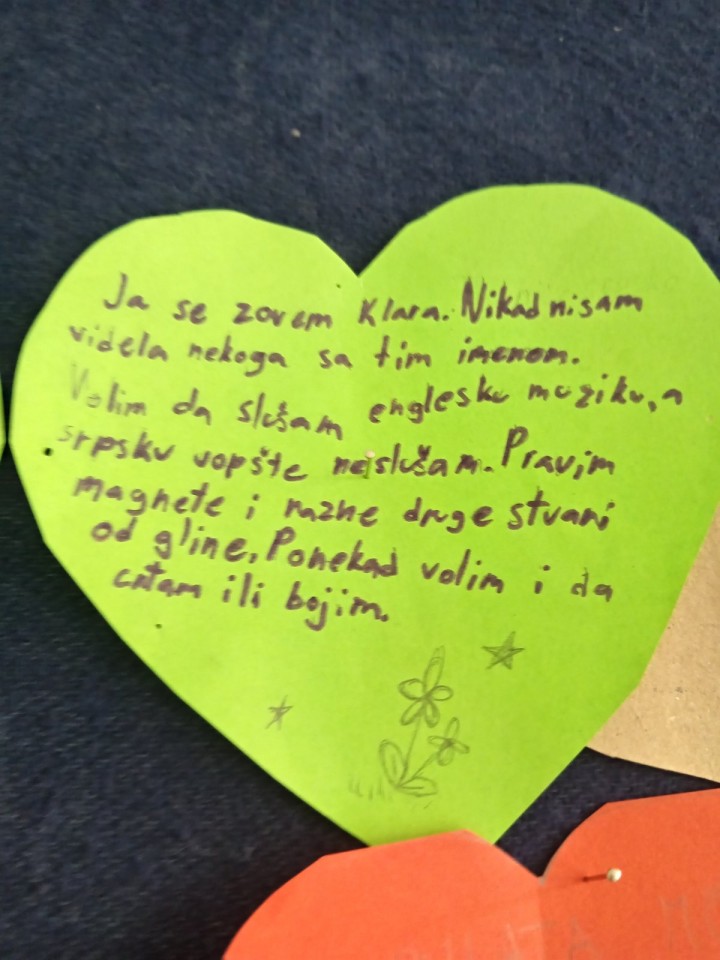 Ja se zovem Klara. Nikad nisam
videla nekoga sa tim imenom.
Volim da slušam englesku muziku, a
srpsku uopšte neslušam. Pravim
magnete i razne druge stvari
od gline. Ponekad volim i da
crtam ili bojim.